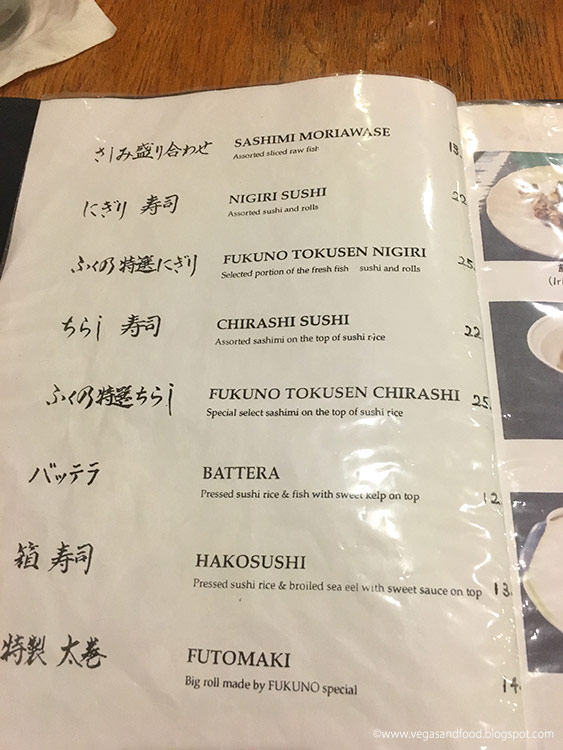 さしみ盛り合わせ SASHIMI MORIAWASE
Assorted sliced raw fish
にぎり 寿司 NIGIRI SUSHI 22
Assorted sushi and rolls
ふくの特選にぎり FUKUNO TOKUSEN NIGIRI 25.
Selected portion of the fresh fish sushi and rolls
ちらし 寿司 CHIRASHI SUSHI 22
Assorted sashimi on the top of sushi rice
ふくの特選ちらし FUKUNO TOKUSEN CHIRASHI 25.
Special select sashimi on the top of sushi rice
バッテラ BATTERA 12.
Pressed sushi rice & fish with sweet kelp on top
箱 寿司 HAKOSUSHI 13.
Pressed sushi rice & broiled sea eel with sweet sauce on top
特製 太巻 FUTOMAKI 14.
Big roll made by FUKUNO special
©www.vegasandfood.blogspot.com